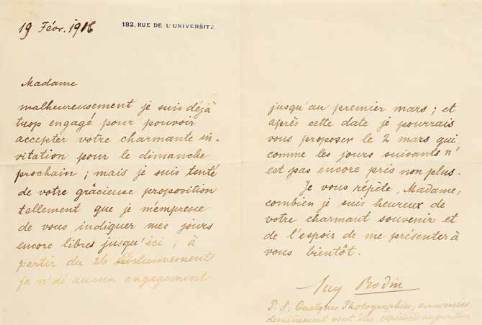 19 Févr. 1916
182, RUE DE L'UNIVERSITÉ
Madame
malheureusement je suis déjà
trop engagé pour pouvoir
accepter votre charmante in-
vitation pour le dimanche
prochain ; mais je suis tenté
de votre grâcieuse proposition
tellement que je m'empresse
de vous indiquer mes jours
encore libres jusqu'ici ; à
partir du 26
je n'ai aucun engagement
jusqu'au premier mars ; et
après cette date je pourrais
vous proposer le 2 mars qui
comme les jours suivants n'
est pas encore pris non plus.
Je vous répète, Madame,
combien je suis heureux de
votre charmant souvenir et
de l'espoir de me présenter à
vous bientôt.
Aug Rodin
P. S. Quelques Photographies